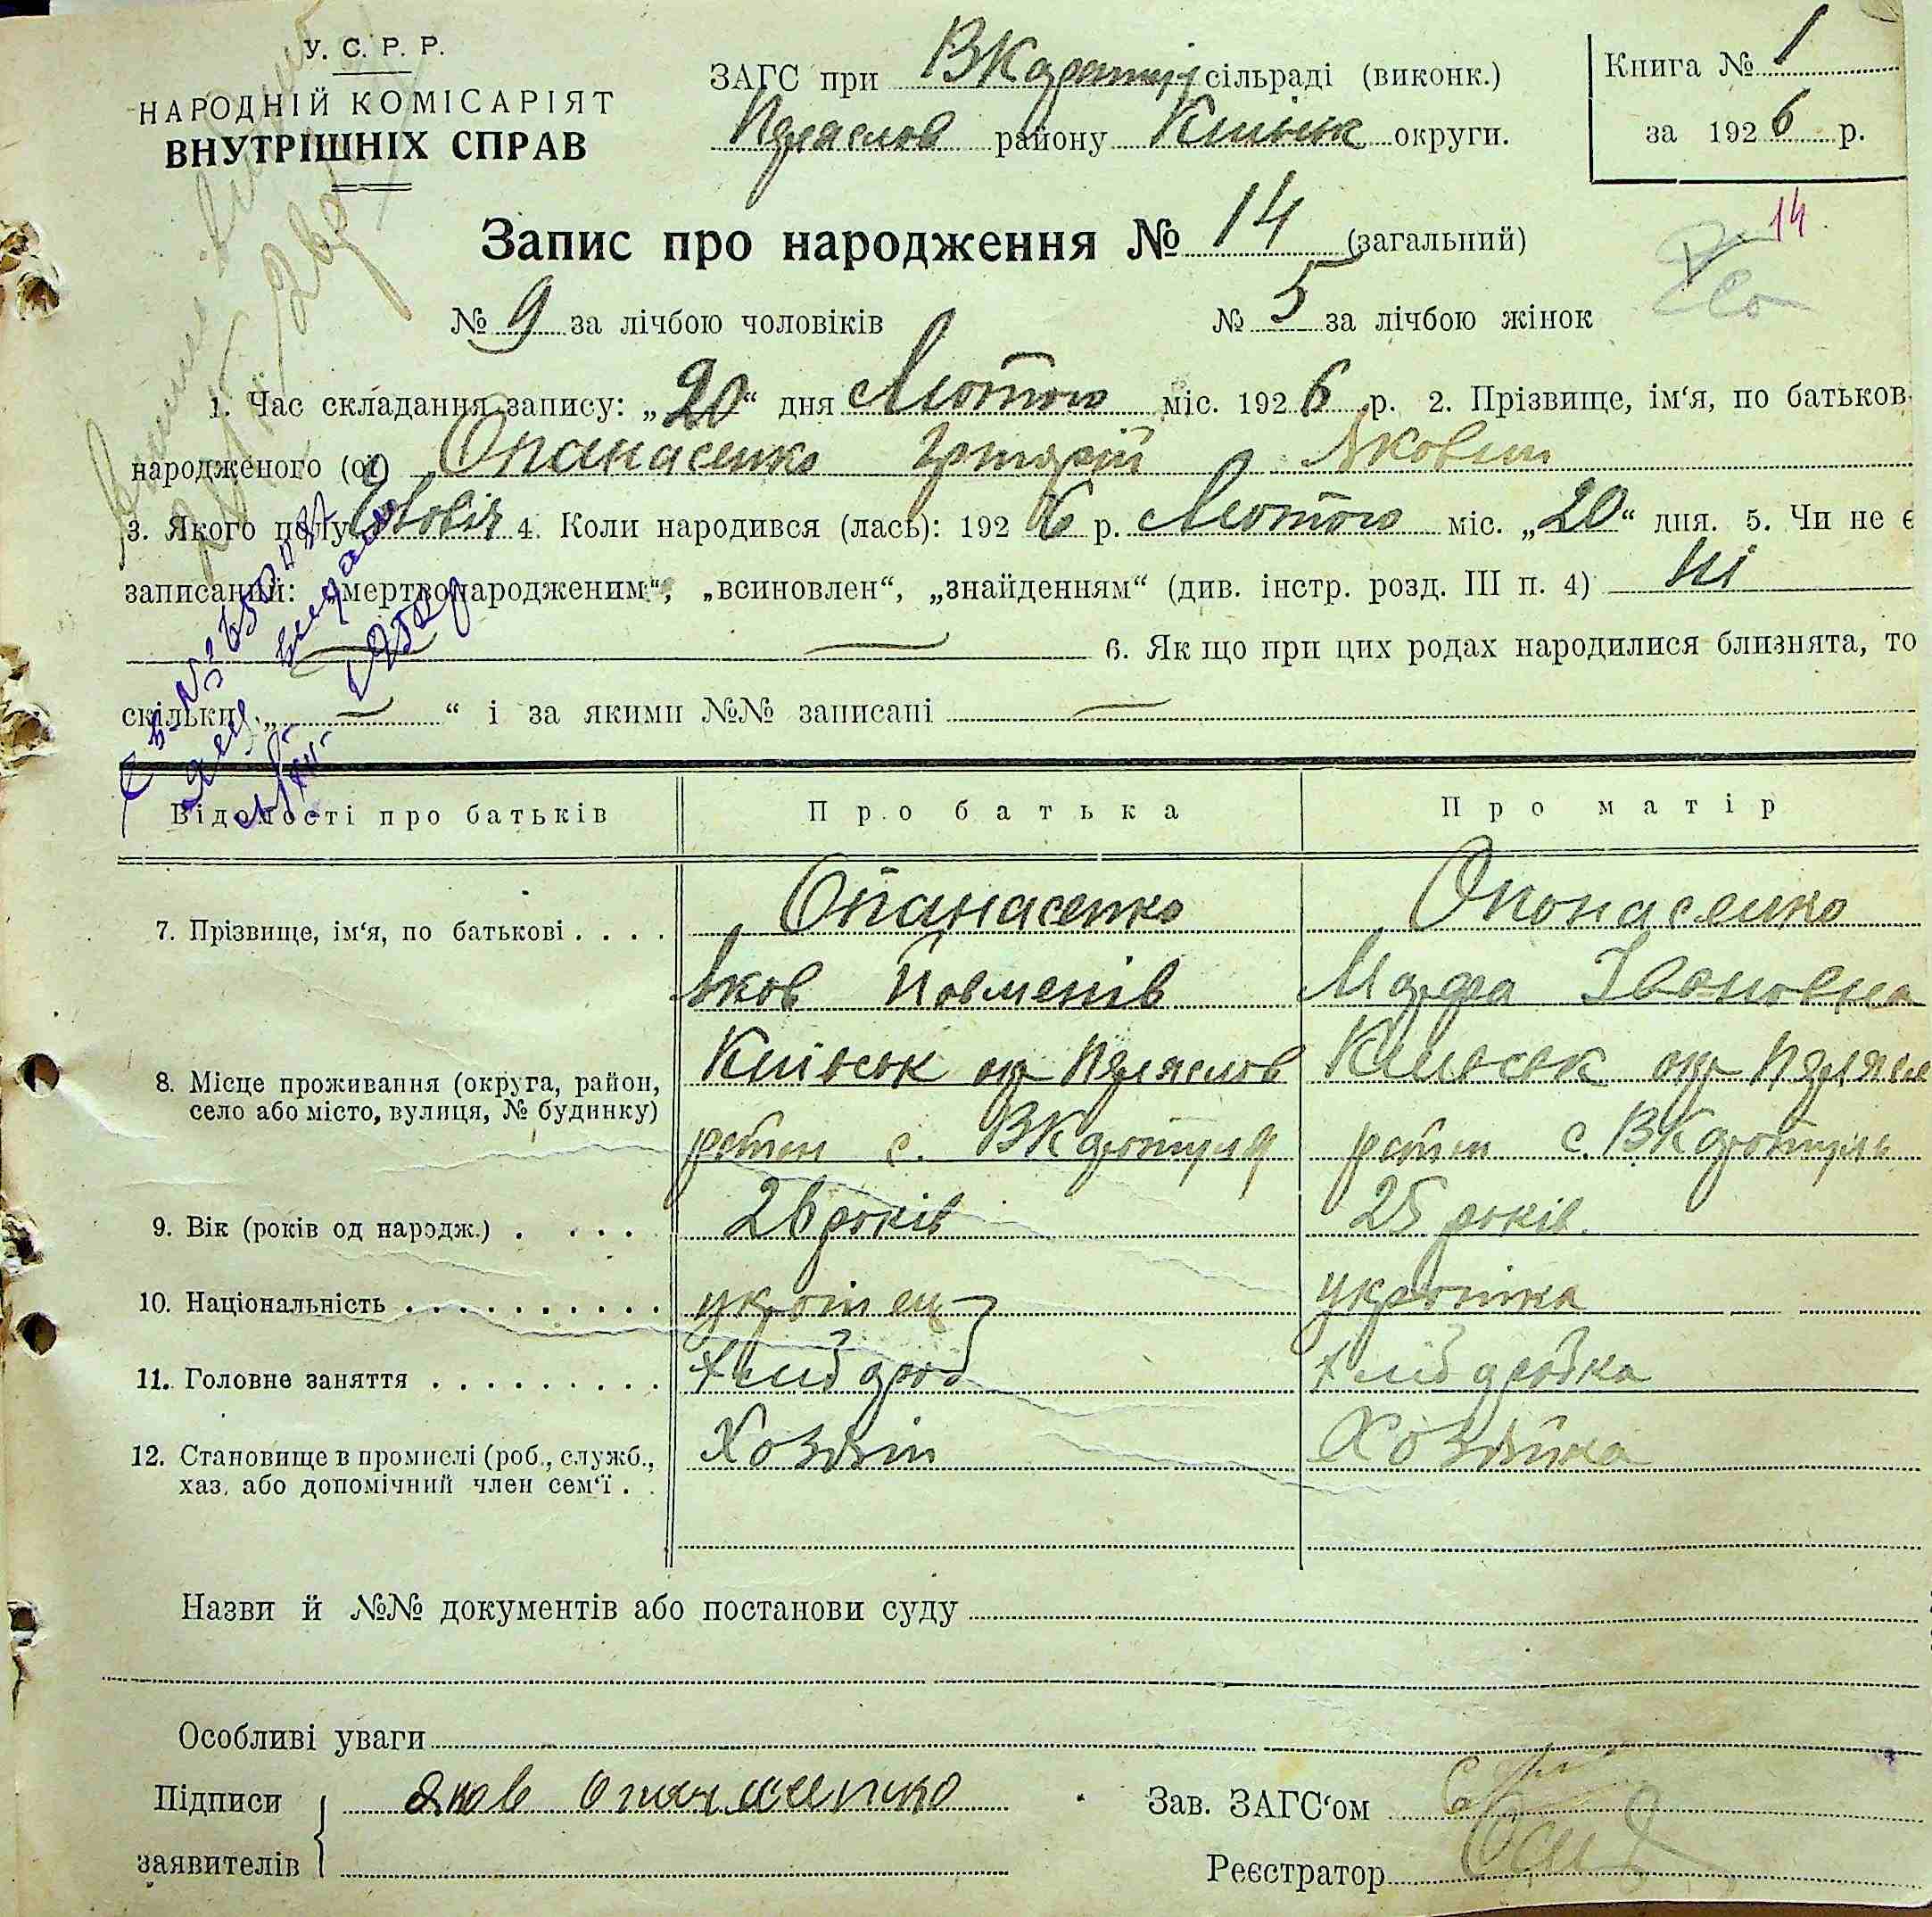 У. С. Р. Р.
НАРОДНІЙ КОМІСАРІЯТ
ВНУТРІШНІХ СПРАВ
ЗАГС при ВКаратул сільраді (виконк.)
Переяслов району Київськ округи.
Книга № 1
за 1926 р.
14
Запис про народження № 14 (загальний)
№ 9 за лічбою чоловіків № 5 за лічбою жінок
1. Час складання запису: „20“ дня Лютого міс. 1926 р. 2. Прізвище, ім‘я, по батьков
народженого (ої) Опанасенко Григорій Якович
3. Якого полу Чоловіч 4. Коли народився (лась): 1926 р. Лютого міс. „20“ дня. 5. Чи не є
записаний: „мертвонародженим“, „всиновлен“, „знайденням“ (див. інстр. розд. III п. 4) ні
6. Як що при цих родах народилися близнята, то
скільки „ — “ і за якими №№ записані —
Відомості про батьків Про батька Про матір
7. Прізвище, ім‘я, по батькові Опанасенко Опонасенко
Яков Марфа Івановна
8. Місце проживання (округа, район, Київськ окр Переяслов Київськ окр Переясл
село або місто, вулиця, № будинку) район с. ВКаратуля район с. ВКаратуль
9. Вік (років од народж.) 26 років 25 років
10. Національність україінец українка
11. Головне заняття хлібороб хліборобка
12. Становище в промислі (роб., служб., Хозяїн Хозяйка
хаз. або допомічний член сем‘ї
Назви й №№ документів або постанови суду
Особливі уваги
Підписи Яков Опанасенко Зав. ЗАГС‘ом
заявителів Реєстратор